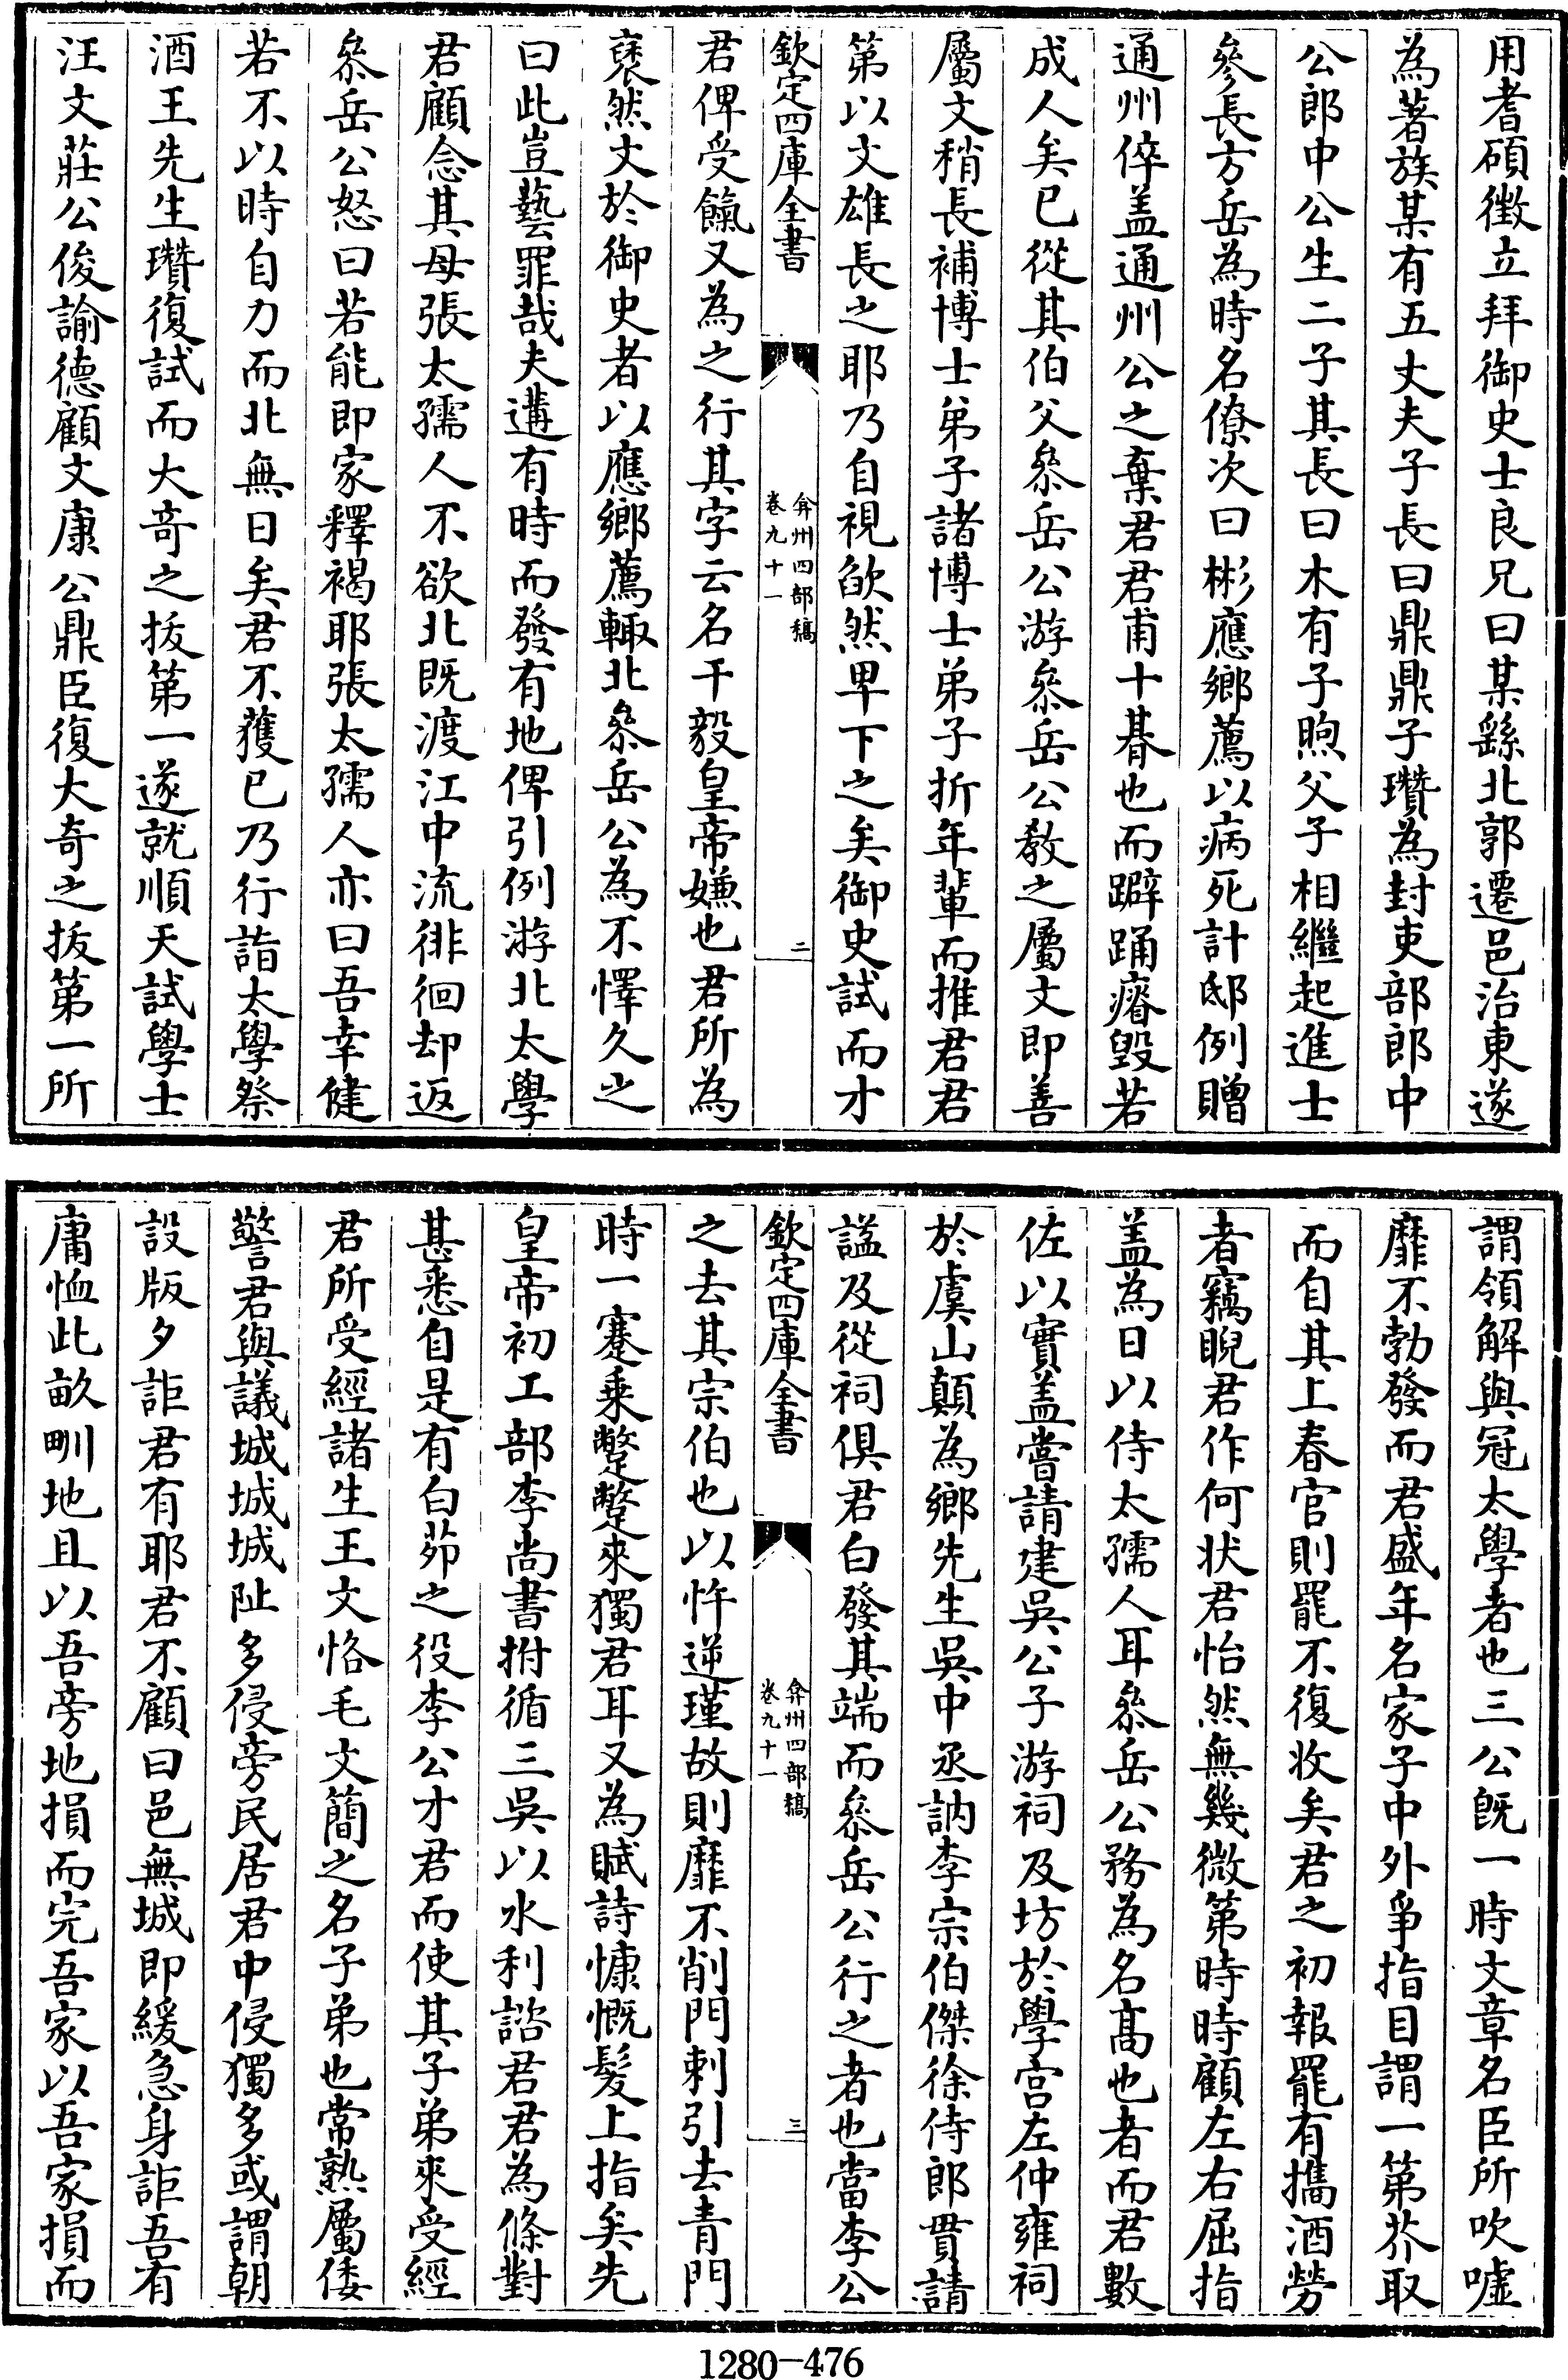 用耆碩徴立拜御史士良兄曰某繇北郭遷邑治東遂
為著族某有五丈夫子長曰鼎鼎子瓚為封吏部郎中
公郎中公生二子其長曰木有子煦父子相繼起進士
參長方岳為時名僚次曰彬應鄉薦以病死計邸例贈
通州倅盖通州公之棄君君甫十朞也而躃踊瘠毀若
成人矣已從其伯父叅岳公游叅岳公教之屬文即善
屬文稍長補博士弟子諸博士弟子折年輩而推君君
第以文雄長之耶乃自視欿然卑下之矣御史試而才
欽定四庫全書
弇州四部稿
卷九十一
二
君俾受餼又為之行其字云名干毅皇帝嫌也君所為
襃然文於御史者以應鄉薦輙北叅岳公為不懌久之
曰此豈藝罪哉夫遘有時而發有地俾引例游北太學
君顧念其母張太孺人不欲北既渡江中流徘徊却返
叅岳公怒曰若能即家釋褐耶張太孺人亦曰吾幸健
若不以時自力而北無日矣君不獲已乃行詣太學祭
酒王先生瓚復試而大竒之拔第一遂就順天試學士
汪文莊公俊諭德顧文康公鼎臣復大奇之拔第一所
謂領解與冠太學者也三公既一時文章名臣所吹噓
靡不勃發而君盛年名家子中外爭指目謂一第芥取
而自其上春官則罷不復收矣君之初報罷有攜酒勞
者竊睨君作何狀君怡然無幾微第時時顧左右屈指
盖為日以侍太孺人耳叅岳公務為名髙也者而君數
佐以實盖嘗請建吳公子游祠及坊於學宫左仲雍祠
於虞山顛為鄉先生吳中丞訥李宗伯傑徐侍郎貫請
諡及從祠俱君白發其端而叅岳公行之者也當李公
欽定四庫全書
弇州四部稿
卷九十一
三
之去其宗伯也以忤逆瑾故則靡不削門刺引去青門
時一蹇乘蹩蹩來獨君耳又為賦詩慷慨髮上指矣先
皇帝初工部李尚書拊循三吳以水利諮君君為條對
甚悉自是有白茆之役李公才君而使其子弟來受經
君所受經諸生王文恪毛文簡之名子弟也常熟屬倭
警君與議城城城阯多侵旁民居君中侵獨多或謂朝
設版夕詎君有耶君不顧曰邑無城即緩急身詎吾有
庸恤此畝甽地且以吾旁地損而完吾家以吾家損而
1280-476